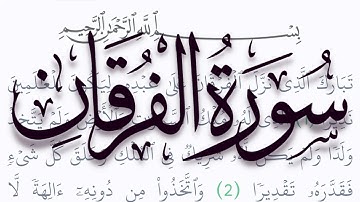 بِسْمِ اللَّهِ الرَّحْمَٰنِ الرَّحِيمِ
سُورَةُ الْفُرْقَانِ
تَبَارَكَ الَّذِى نَزَّلَ الْفُرْقَانَ عَلَىٰ عَبْدِهِۦ لِيَكُونَ لِلْعَٰلَمِينَ
وَالْأَرْضِ وَلَمْ يَتَّخِذْ
وَلَدًا وَلَمْ يَكُن لَّهُۥ شَرِيكٌ فِى الْمُلْكِ وَخَلَقَ كُلَّ شَىْءٍ
فَقَدَّرَهُۥ تَقْدِيرًا (2) وَاتَّخَذُوا۟ مِن دُونِهِۦٓ ءَالِهَةً لَّا